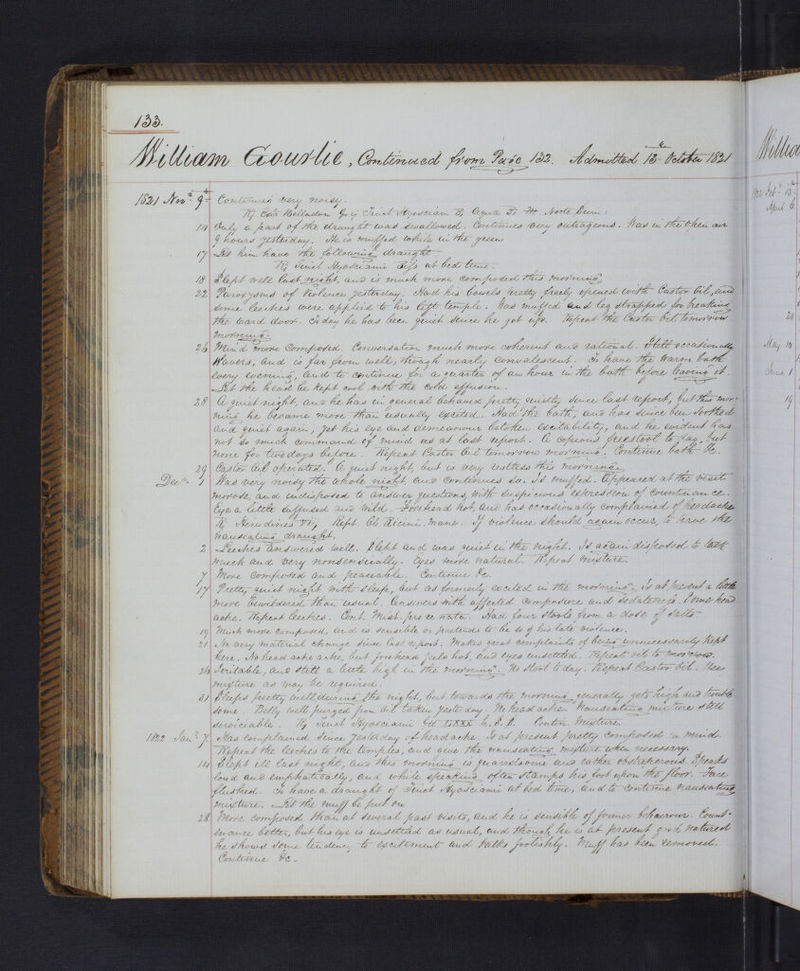 133.
William Gourlie, Continued from Page 132. Admitted 12 October 1821
1821 Nov. 9 Continues very noisy.
Ext. Belladon. Tinct Hyosciam Aqua Ft. Ht. Nocte Sum:
10 Only a part of the draught was swallowed. Continues very outrageous. Was in the open air
9 hours yesterday. He is muffed while in the green
17 Let him have the following draught
Tinct Hyosciami at bed time.
18 Slept well last night, and is much more composed this morning
22 Paroxysms of violence yesterday. Had his bowels pretty freely opened with Castor Oil, and
some leeches were applied to his left temple. Was muffed and leg strapped for breaking
the ward door. To day he has been quiet since he got up. Repeat the Castor Oil tomorrow
morning.
26 Mind more composed. Conversation much more coherent and rational. Still occasionally
wavers, and is far from well, though nearly convalescent. To have the warm bath
every evening, and to continue for a quarter of an hour in the bath before leaving it
Let the head be kept cool with the cold effusion.
28 A quiet night, and he has in general behaved pretty quietly since last report, but this mor-
ning he became more than usually excited. Had the bath, and has since been soothed
and quiet again, yet his eye and demeanour betoken excitability, and he evident has
not so much command of mind as at last report. A copious free stool to day, but
none for two days before. Repeat Castor Oil tomorrow morning. Continue bath &c.
29 Castor Oil operated. A quiet night, but is very restless this morning.
Dec. 1 Was very noisy the whole night and continues so. Is muffed. Appeared at the visit
morose, and indisposed to answer questions, with suspicious expression of countenance.
Eye a little suffused and wild. Forehead hot, and has occasionally complained of headache
Hirudines VI, Rept. Ol Ricini. mane. If violence should again occur, to have the
nauseating draught.
2 Leeches answered well. Slept and was quiet in the night. Is again disposed to talk
much and very nonsensically. Eyes more natural. Repeat mixture.
7 More composed and peaceable. Continue &c.
17 Pretty quiet night with sleep, but as formerly excited in the morning. Is at present a little
more bewildered than usual. Answers with affected composure and sedateness. Some head
ache. Repeat leeches. Cont. Mist. pro re nata. Had four stools from a dose of salts.
19 Much more composed, and is sensible or pretends to be so of his late violence.
21 No very material change since last report. Makes great complaints of being unnecessarily kept
here. No head ache, but forehead feels hot, and eyes unsettled. Repeat oil to morrow.
26 Irritable, and still a little high in the morning. No stool to day. Repeat Castor Oil. Use
mixture as may be required.
31 Sleeps pretty well during the night, but towards the morning generally gets high and trouble
some. Belly well purged from oil taken yesterday. No head ache. Nauseating mixture still
serviceable. Tinct Hyosciami H. S. S. Contin Mixture.
1822 Jan. 7 Has complained since yesterday of head ache. Is at present pretty composed in mind.
Repeat the leeches to the temples, and give the nauseating mixture when necessary.
14 Slept ill last night, and this morning is quarrelsome and rather obstreperous. Speaks
loud and emphatically, and while speaking often stamps his foot upon the floor. Face
flushed. To have a draught of Tinct Hyosciami at bed time, and to continue nauseating
mixture. Let the muff be put on
28 More composed than at several past visits, and he is sensible of former behaviour. Count-
enance better, but his eye is unsettled as usual, and though he is at present good natured
he shows some tendency to excitement and talks foolishly. Muff has been removed.
Continue &c.